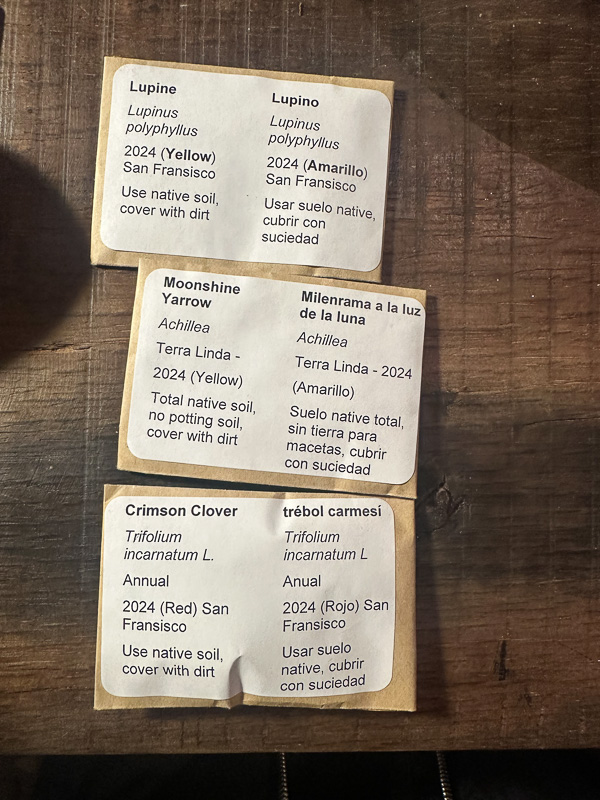 Lupine
Lupinus
polyphyllus
2024 (Yellow)
San Fransisco
Use native soil,
cover with dirt
Lupino
Lupinus
polyphyllus
2024 (Amarillo)
San Fransisco
Usar suelo native,
cubrir con
suciedad
Moonshine
Yarrow
Achillea
Terra Linda -
2024 (Yellow)
Total native soil,
no potting soil,
cover with dirt
Milenrama a la luz
de la luna
Achillea
Terra Linda - 2024
(Amarillo)
Suelo native total,
sin tierra para
macetas, cubrir
con suciedad
Crimson Clover
Trifolium
incarnatum L.
Annual
2024 (Red) San
Fransisco
Use native soil,
cover with dirt
trébol carmesí
Trifolium
incarnatum L
Anual
2024 (Rojo) San
Fransisco
Usar suelo
native, cubrir
con suciedad